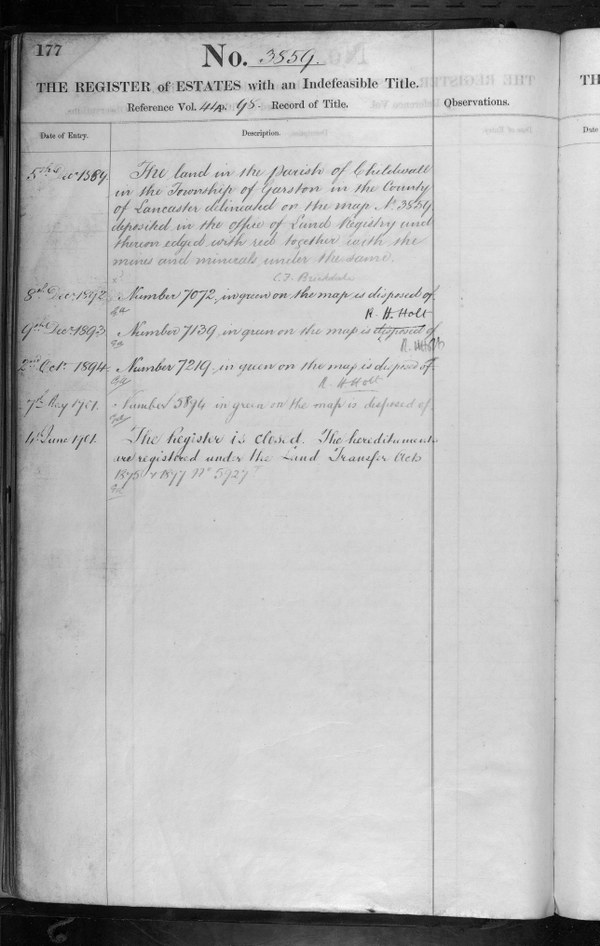 177
No. 3859.
THE REGISTER of ESTATES with an Indefeasible Title.
Reference Vol. 44 p. 95. Record of Title.
Observations.
Date of Entry.
Description.
5th Decr 1889. The land in the parish of Childwall
in the Township of Garston in the County
of Lancaster delineated on the map No 3859
deposited in the office of Land Registry and
thereon edged with red together with the
mines and minerals under the same.
C. F. Brickdale
8th Decr 1892. Number 7072, in green on the map is disposed of.
R. H. Holt
9th Decr 1893. Number 7139, in green on the map is disposed of
R. H. Holt
2nd Octr 1894. Number 7219, in green on the map is disposed of.
R H Holt
7th May 1901. Number 3894 in green on the map is disposed of.
4 June 1901. The Register is closed. The hereditaments
are registered under the Land Transfer Acts
1875 & 1897 No 5927
TH
Date